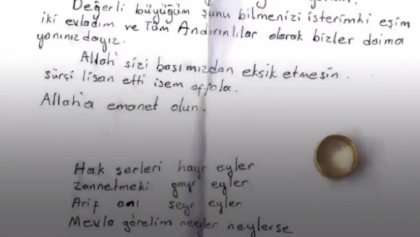 Değerli büyüğüm şunu bilmenizi isterimki eşim
iki evladım ve Tüm Andırınlılar olarak bizler daima
yanınızdayız.
Allah sizi başımızdan eksik etmesin.
sürçi lisan etti isem affola.
Allah'a emanet olun.
Hak şerleri hayr eyler
Zannetmeki gayr eyler
Arif onu seyr eyler
Mevla görelim neyler neylerse